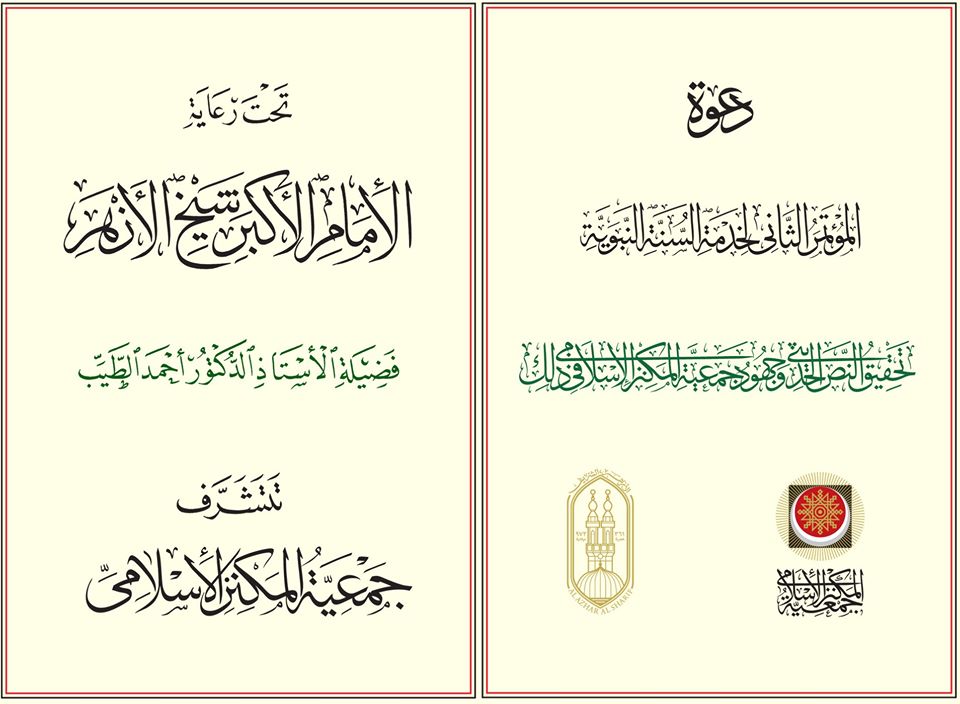 دعوة
المؤتمر الثاني لخدمة السنة النبوية
تحقيق النص الحديثي وجهود جمعية المكنز الإسلامي في ذلك
AL AZHAR AL SHARIF
جمعية
المكنز الإسلامي
تَحْتَ رِعَايَةِ
الإمام الأكبر شيخ الأزهر
فَضِيلَةِ الأُسْتَاذِ الدُّكْتُورِ أَحْمَدَ الطَّيِّبِ
تَتَشَرَّف
جمعية المكنز الإسلامي